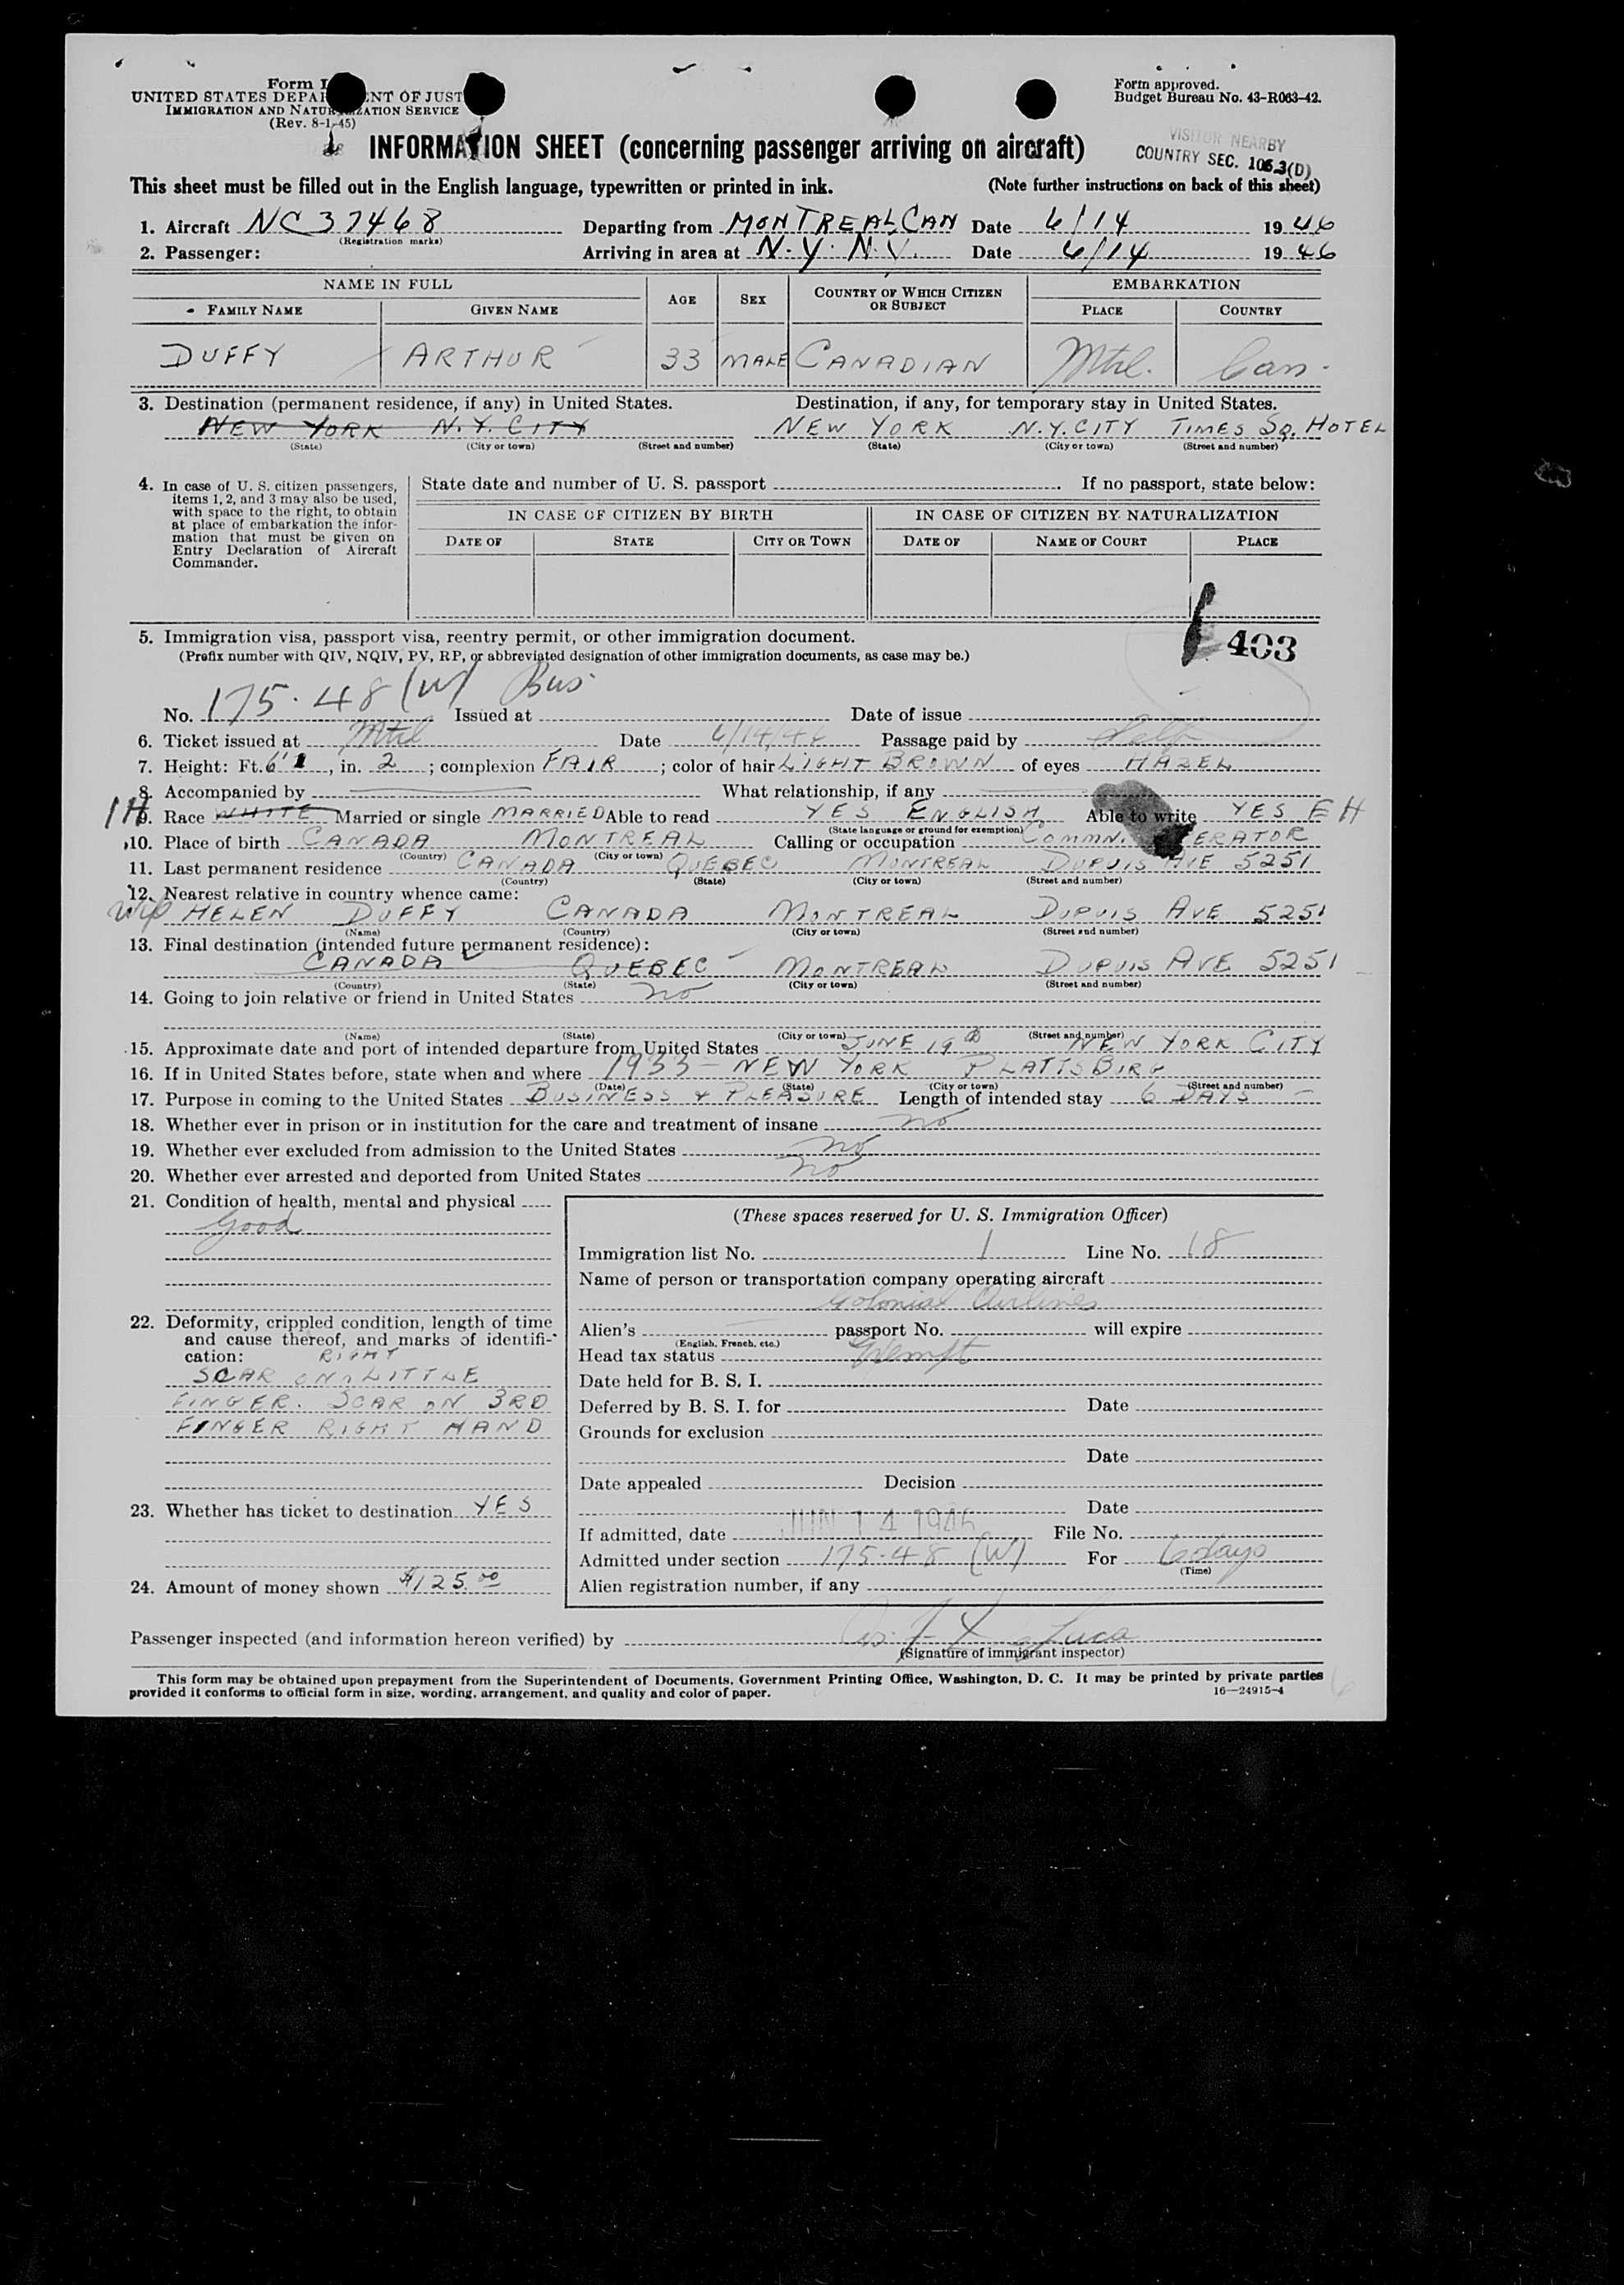 Form I
UNITED STATES DEPA NT OF JUST
IMMIGRATION AND NATUR ZATION SERVICE
(Rev. 8-1-45)
Form approved.
Budget Bureau No. 43-R063-42.
INFORMATION SHEET (concerning passenger arriving on aircraft)
VISITOR NEARBY
COUNTRY SEC. 106.3(D)
This sheet must be filled out in the English language, typewritten or printed in ink. (Note further instructions on back of this sheet)
1. Aircraft NC 37468 Departing from MONTREAL CAN Date 6/14 1946
(Registration marks)
2. Passenger: Arriving in area at N.Y. N.Y. Date 6/14 1946
NAME IN FULL AGE SEX COUNTRY OF WHICH CITIZEN OR SUBJECT EMBARKATION
FAMILY NAME GIVEN NAME PLACE COUNTRY
DUFFY ARTHUR 33 MALE CANADIAN Mtrl. Can.
3. Destination (permanent residence, if any) in United States. Destination, if any, for temporary stay in United States.
NEW YORK N.Y. CITY NEW YORK N.Y. CITY TIMES SQ. HOTEL
(State) (City or town) (Street and number) (State) (City or town) (Street and number)
4. In case of U. S. citizen passengers, items 1, 2, and 3 may also be used, with space to the right, to obtain at place of embarkation the information that must be given on Entry Declaration of Aircraft Commander.
State date and number of U. S. passport If no passport, state below:
IN CASE OF CITIZEN BY BIRTH IN CASE OF CITIZEN BY NATURALIZATION
DATE OF STATE CITY OR TOWN DATE OF NAME OF COURT PLACE
5. Immigration visa, passport visa, reentry permit, or other immigration document.
(Prefix number with QIV, NQIV, PV, RP, or abbreviated designation of other immigration documents, as case may be.)
403
No. 175.48 (W) Bus. Issued at Date of issue
6. Ticket issued at Mtrl Date 6/14/46 Passage paid by Self
7. Height: Ft. 6'1, in. 2; complexion FAIR; color of hair LIGHT BROWN of eyes HAZEL
8. Accompanied by What relationship, if any
9. Race WHITE Married or single MARRIED Able to read YES ENGLISH Able to write YES
(State language or ground for exemption)
10. Place of birth CANADA MONTREAL Calling or occupation COMMN. ERATOR
(Country) (City or town)
11. Last permanent residence CANADA QUEBEC MONTREAL DUPUIS AVE 5251
(Country) (State) (City or town) (Street and number)
12. Nearest relative in country whence came:
HELEN DUFFY CANADA MONTREAL DUPUIS AVE 5251
(Name) (Country) (City or town) (Street and number)
13. Final destination (intended future permanent residence):
CANADA QUEBEC MONTREAL DUPUIS AVE 5251
(Country) (State) (City or town) (Street and number)
14. Going to join relative or friend in United States no
(Name) (State) (City or town) (Street and number)
15. Approximate date and port of intended departure from United States JUNE 19 NEW YORK CITY
16. If in United States before, state when and where 1933 - NEW YORK PLATTSBURG
(Date) (State) (City or town) (Street and number)
17. Purpose in coming to the United States BUSINESS & PLEASURE Length of intended stay 6 DAYS
18. Whether ever in prison or in institution for the care and treatment of insane no
19. Whether ever excluded from admission to the United States no
20. Whether ever arrested and deported from United States no
21. Condition of health, mental and physical
Good
22. Deformity, crippled condition, length of time and cause thereof, and marks of identification:
RIGHT
SCAR ON LITTLE
FINGER. SCAR ON 3RD
FINGER RIGHT HAND
23. Whether has ticket to destination YES
24. Amount of money shown $125.00
(These spaces reserved for U. S. Immigration Officer)
Immigration list No. 1 Line No. 18
Name of person or transportation company operating aircraft
Colonial Airlines
Alien's passport No. will expire
(English, French, etc.)
Head tax status Exempt
Date held for B. S. I.
Deferred by B. S. I. for Date
Grounds for exclusion
Date
Date appealed Decision
Date
If admitted, date JUN 14 1946 File No.
Admitted under section 175.48 (W) For 6 days
(Time)
Alien registration number, if any
Passenger inspected (and information hereon verified) by
(Signature of immigrant inspector)
This form may be obtained upon prepayment from the Superintendent of Documents, Government Printing Office, Washington, D. C. It may be printed by private parties
provided it conforms to official form in size, wording, arrangement, and quality and color of paper. 16—24915-4